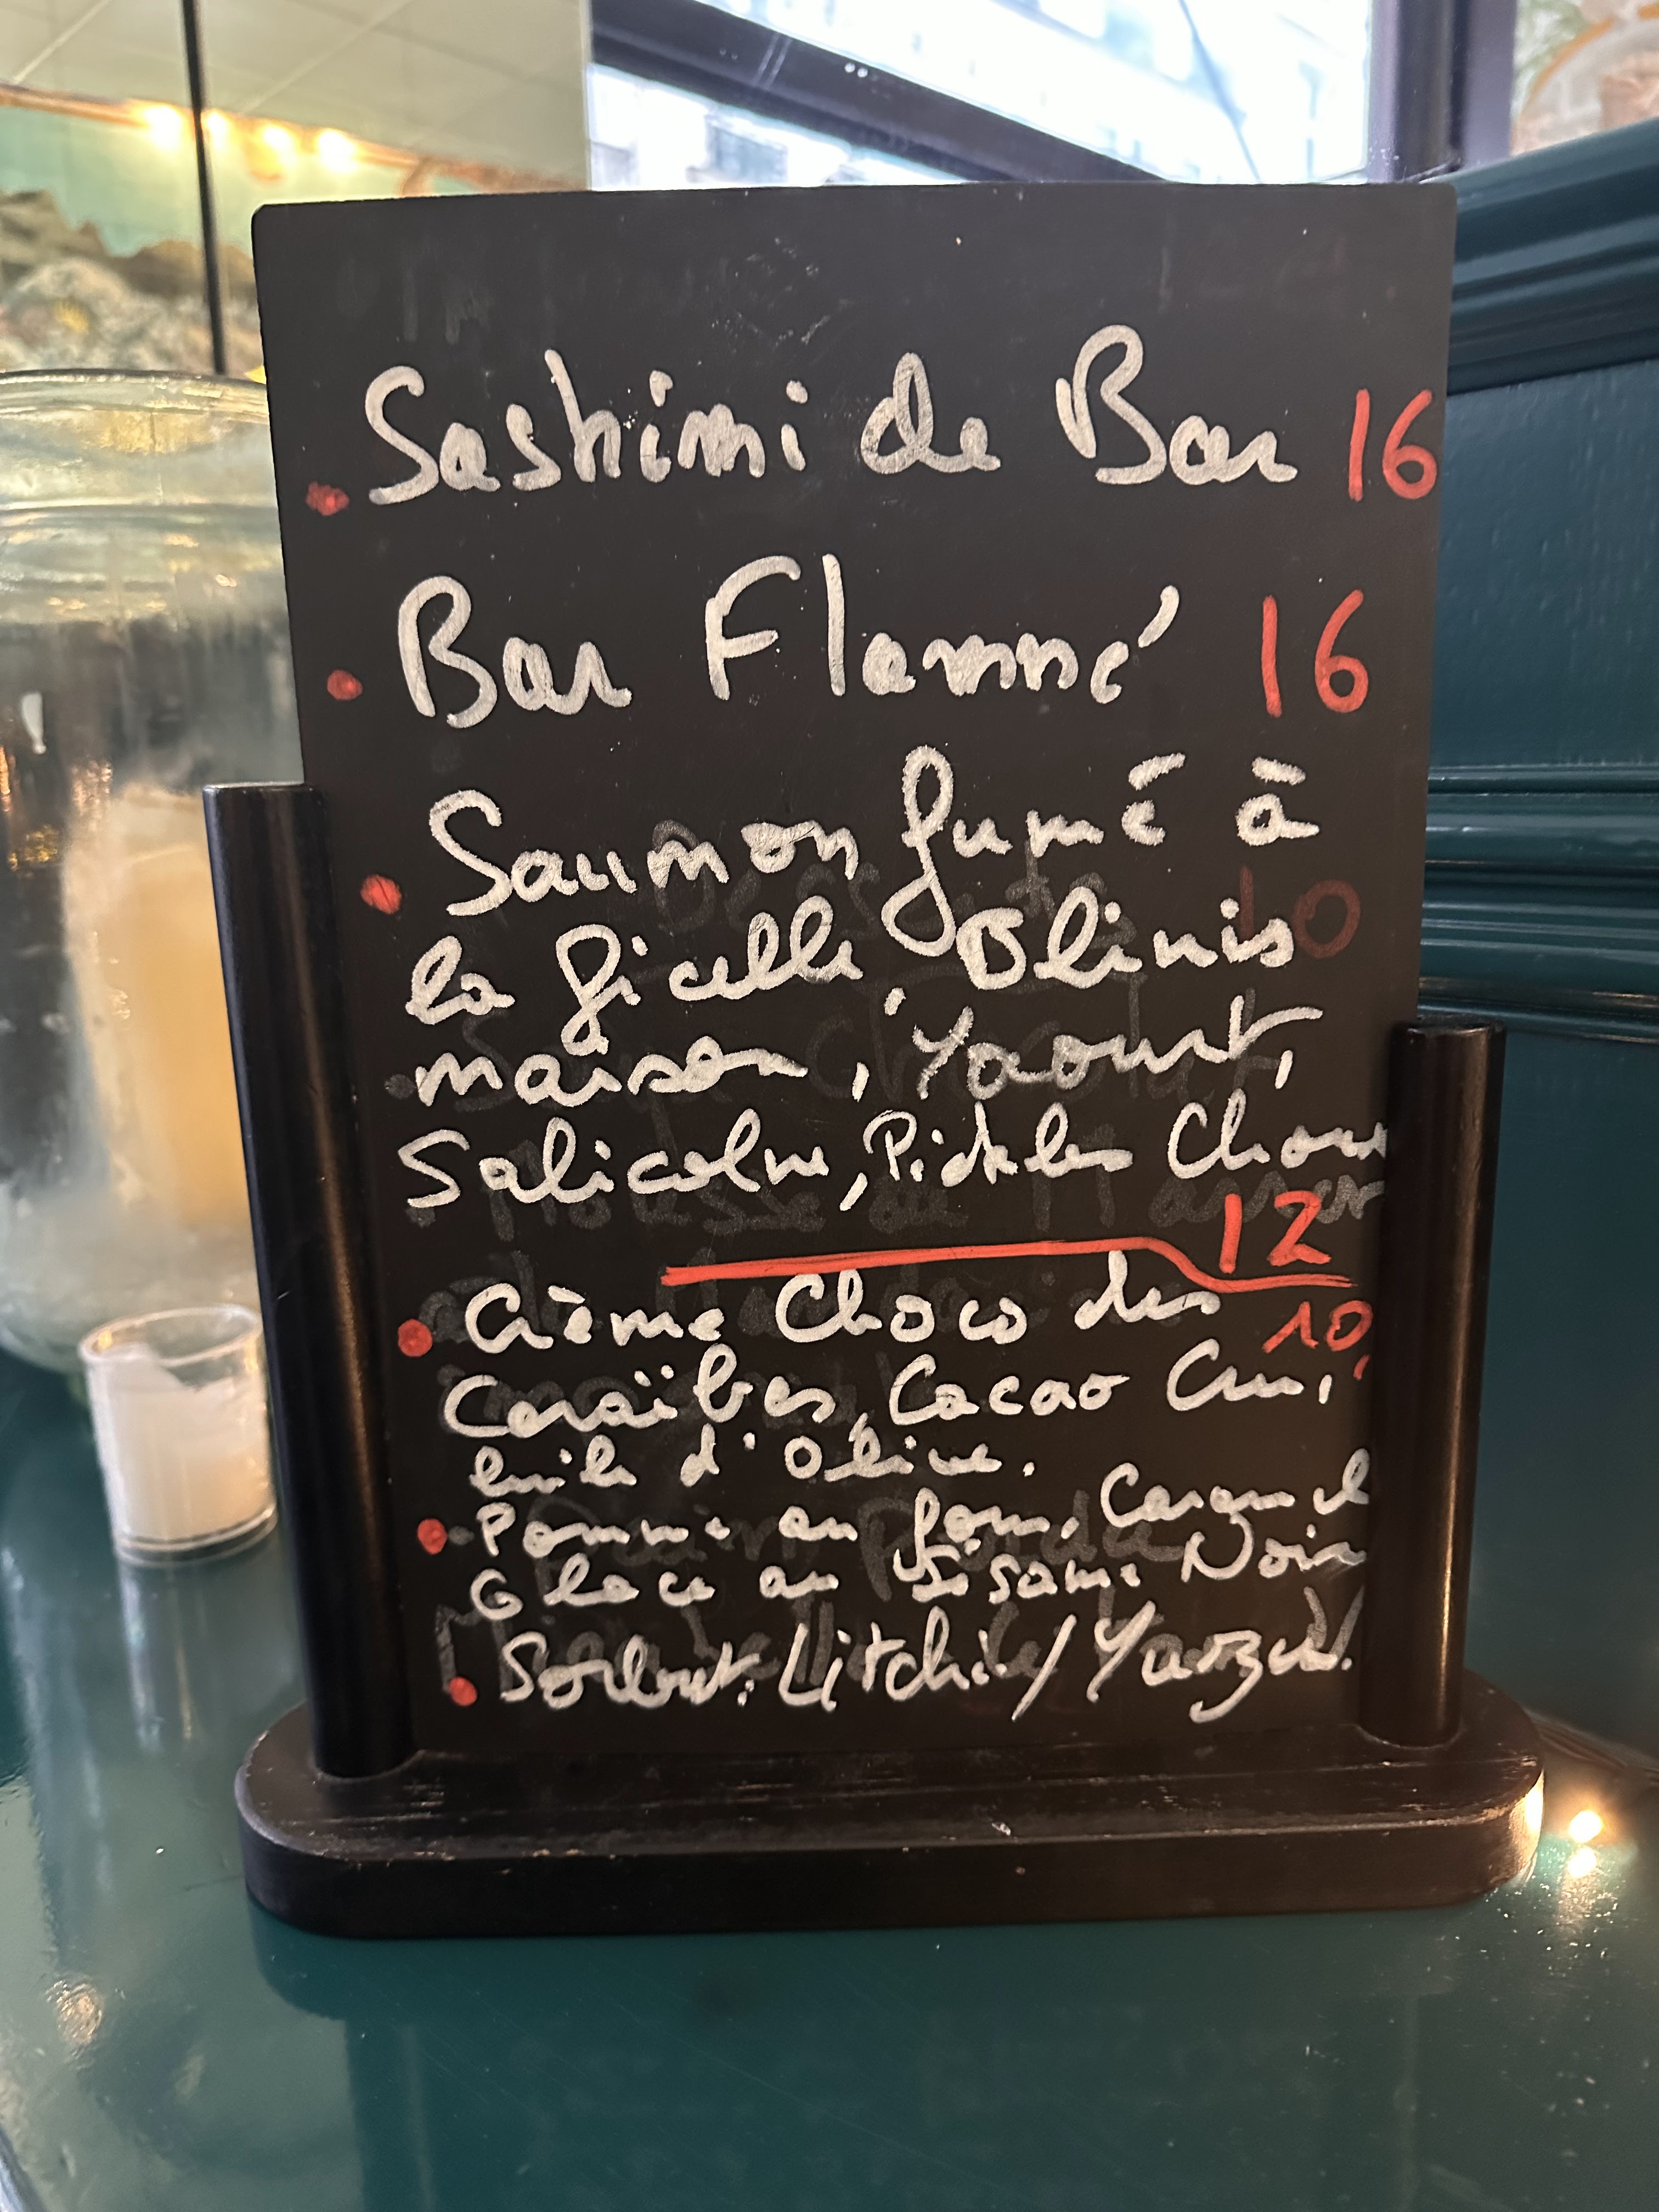 Sashimi de Bar 16
Bar Flammé 16
Saumon fumé à
la ficelle, Blinis
maison, Yaourt,
Salicorne, Pickles Choux
12
Crème Choco des
10
Caraïbes, Cacao Cru,
huile d'Olive.
Pomme au four, Caramel
Glace au Sésame Noir
Sorbet: Litchi / Yuzu.